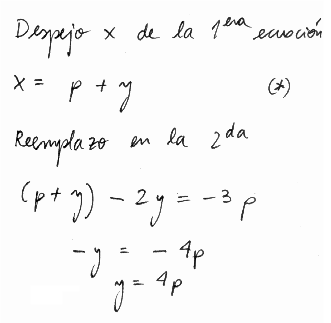 Despejo x de la 1era ecuación
x = p + y (*)
Reemplazo en la 2da
(p + y) - 2y = -3p
-y = -4p
y = 4p